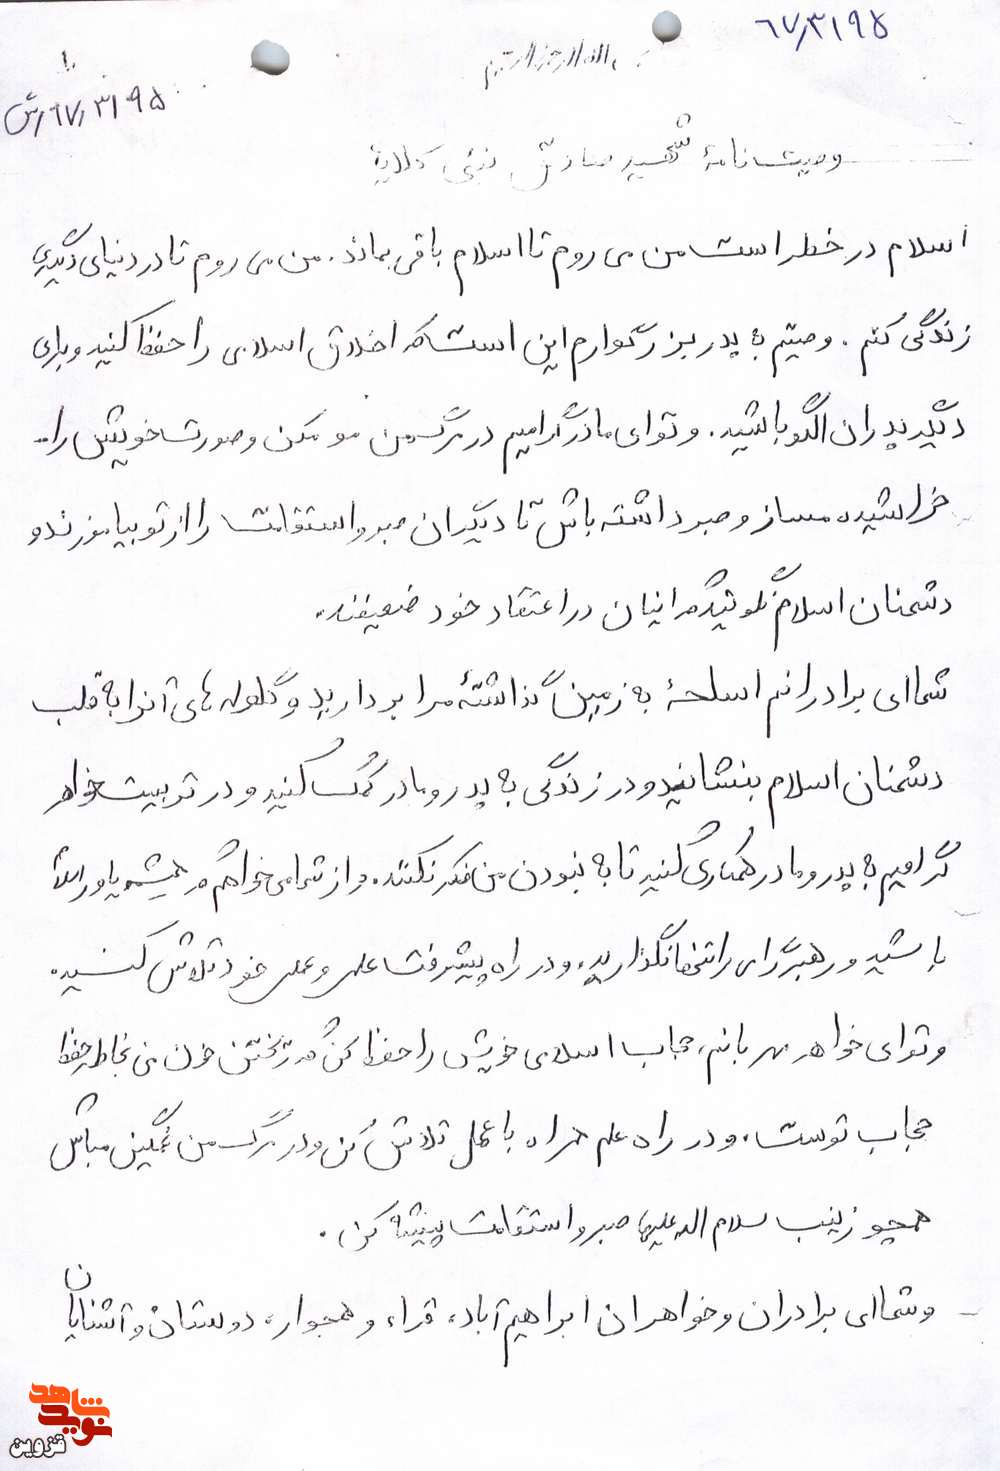 ۶۷٫۳۱۹۵
الله الرحمن الرحیم
۶۷٫۳۱۹۵٫ش
وصیت‌نامهٔ شهید صادق نبئی کلایهٔ
اسلام در خطر است من می روم تا اسلام باقی بماند. من می روم تا در دنیای دیگری
زندگی کنم . وصیتم به پدر بزرگوارم این است که اخلاق اسلامی را حفظ کنید و برای
دیگر پدران الگو باشید. و تو ای مادر گرامیم در مرگ من مو مکن و صورت خویش را
خراشیده مساز و صبر داشته باش تا دیگران صبر و استقامت را از تو بیاموزند و
دشمنان اسلام نگویند که اینان در اعتقاد خود ضعیفند.
شما ای برادرانم اسلحهٔ به زمین گذاشتهٔ مرا بردارید و گلوله های آنرا به قلب
دشمنان اسلام بنشانید و در زندگی به پدر و مادر کمک کنید و در تربیت خواهر
گرامیم به پدر و مادر همکاری کنید تا به نبودن من فکر نکنند. و از شما می خواهم که همیشه یاور امام
باشید و رهبر گرامی را تنها نگذارید، و در راه پیشرفت علمی و عملی خود تلاش کنید.
و تو ای خواهر مهربانم، حجاب اسلامی خویش را حفظ کن که ریختن خون من بخاطر حفظ
حجاب توست، و در راه علم همراه با عمل تلاش کن و در مرگ من غمگین مباش
همچو زینب سلام الله علیها صبر و استقامت پیشه کن .
و شما ای برادران و خواهران ابراهیم آباد، قراء و همجوار، دوستان و آشنایان
نوید شاهد
قزوین